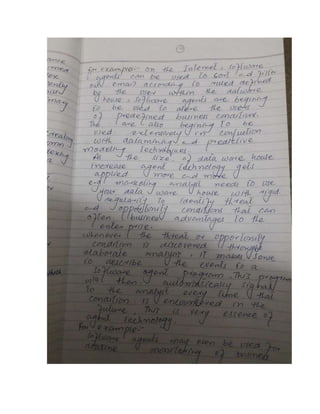 for example:- on the Internet, software
agents can be used to sort and filter
out email according to rules defined
by the user within the dataware
house, software agents are begining
to be used to alerte the users
of predefined business conditions.
The are also begining to be
used extensively in confution
with datamining and predictive
modeling techniques.
As the size of data ware house
increase agent technology gets
applied more and more
and marketing analyst needs to use
your data ware house with rigid
regularity to identify threat
and opportunity conditions that can
often business advantages to the
enterprise.
whenever the threat or opportunity
condition is discovered throught
elaborate analyst, it makes sense
to describe the events to a
software agent program. This program
will then automatically signal
to the analyst every time that
condition is encountered in the
future. This is very essence of
agent technology.
for example:-
software agents may even be used for
routine monitoring of business